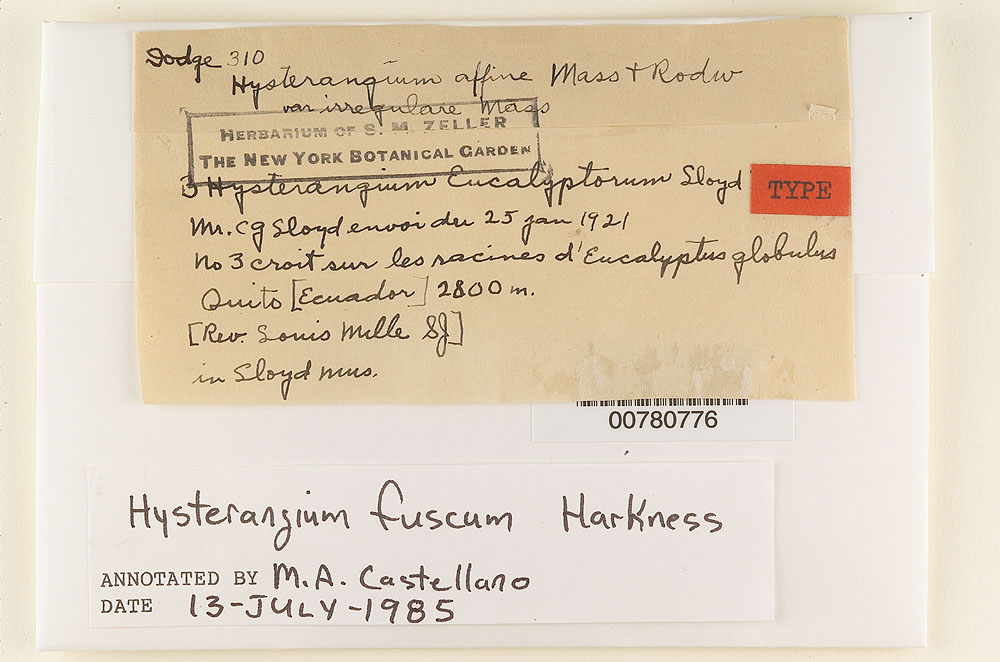 Dodge 310
Hysterangium affine Mass & Rodw
var irregulare Mass
HERBARIUM OF S. M. ZELLER
THE NEW YORK BOTANICAL GARDEN
3 Hysterangium Eucalyptorum Lloyd
TYPE
Mr. C G Lloyd envoi du 25 jan 1921
No 3 croit sur les racines d'Eucalyptus globulus
Quito [Ecuador] 2800 m.
[Rev. Louis Mille SJ]
in Lloyd mus.
00780776
Hysterangium fuscum Harkness
ANNOTATED BY M.A. Castellano
DATE 13-JULY-1985